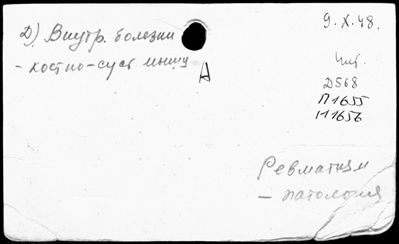 Д) Внутр. болезни
- костно-суст мышц
А
9.X.48.
Чит.
D568
П1655
И1656
Ревматизм
- патология